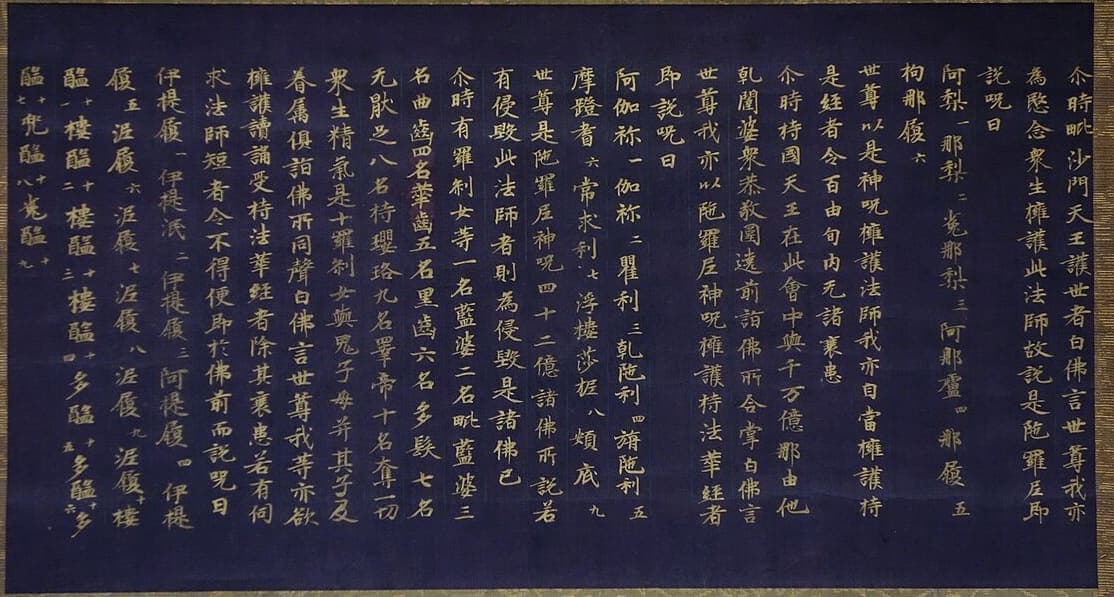 尒時毗沙門天王護世者白佛言世尊我亦
為愍念衆生擁護此法師故說是陁羅尼即
說呪曰
阿梨一那梨二㝹那梨三阿那盧四那履五
拘那履六
世尊以是神呪擁護法師我亦自當擁護持
是經者令百由旬內无諸衰患
尒時持國天王在此會中與千万億那由他
乹闥婆衆恭敬圍遶前詣佛所合掌白佛言
世尊我亦以陁羅尼神呪擁護持法華經者
即說呪曰
阿伽祢一伽祢二瞿利三乹陁利四旃陁利五
摩蹬耆六常求利七浮樓莎柅八頞底九
世尊是陁羅尼神呪四十二億諸佛所說若
有侵毀此法師者則為侵毀是諸佛已
尒時有羅刹女等一名藍婆二名毗藍婆三
名曲齒四名華齒五名黑齒六名多髮七名
无猒足八名持瓔珞九名睪帝十名奪一切
衆生精氣是十羅刹女與鬼子母并其子及
眷属俱詣佛所同聲白佛言世尊我等亦欲
擁護讀誦受持法華經者除其衰患若有伺
求法師短者令不得便即於佛前而說呪曰
伊提履一伊提泯二伊提履三阿提履四伊提
履五泥履六泥履七泥履八泥履九泥履十樓
醯十一樓醯十二樓醯十三樓醯十四多醯十五多醯十六多
醯十七兜醯十八㝹醯十九